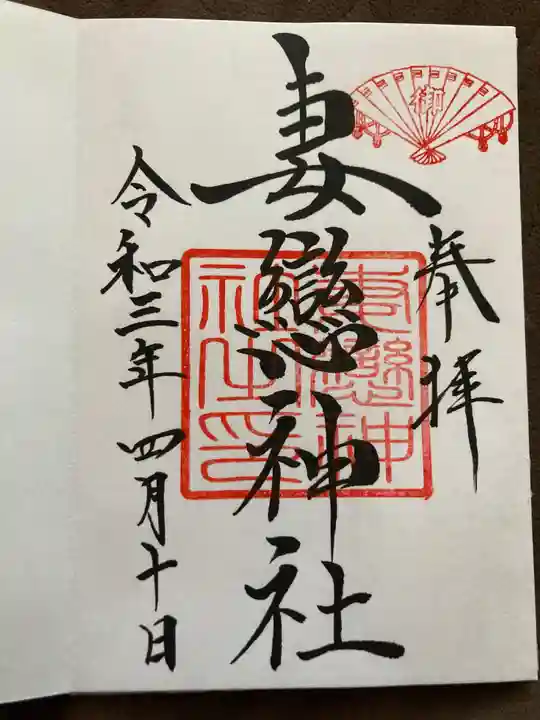 奉拝
妻戀神社
令和三年四月十日
御
妻戀神社之印